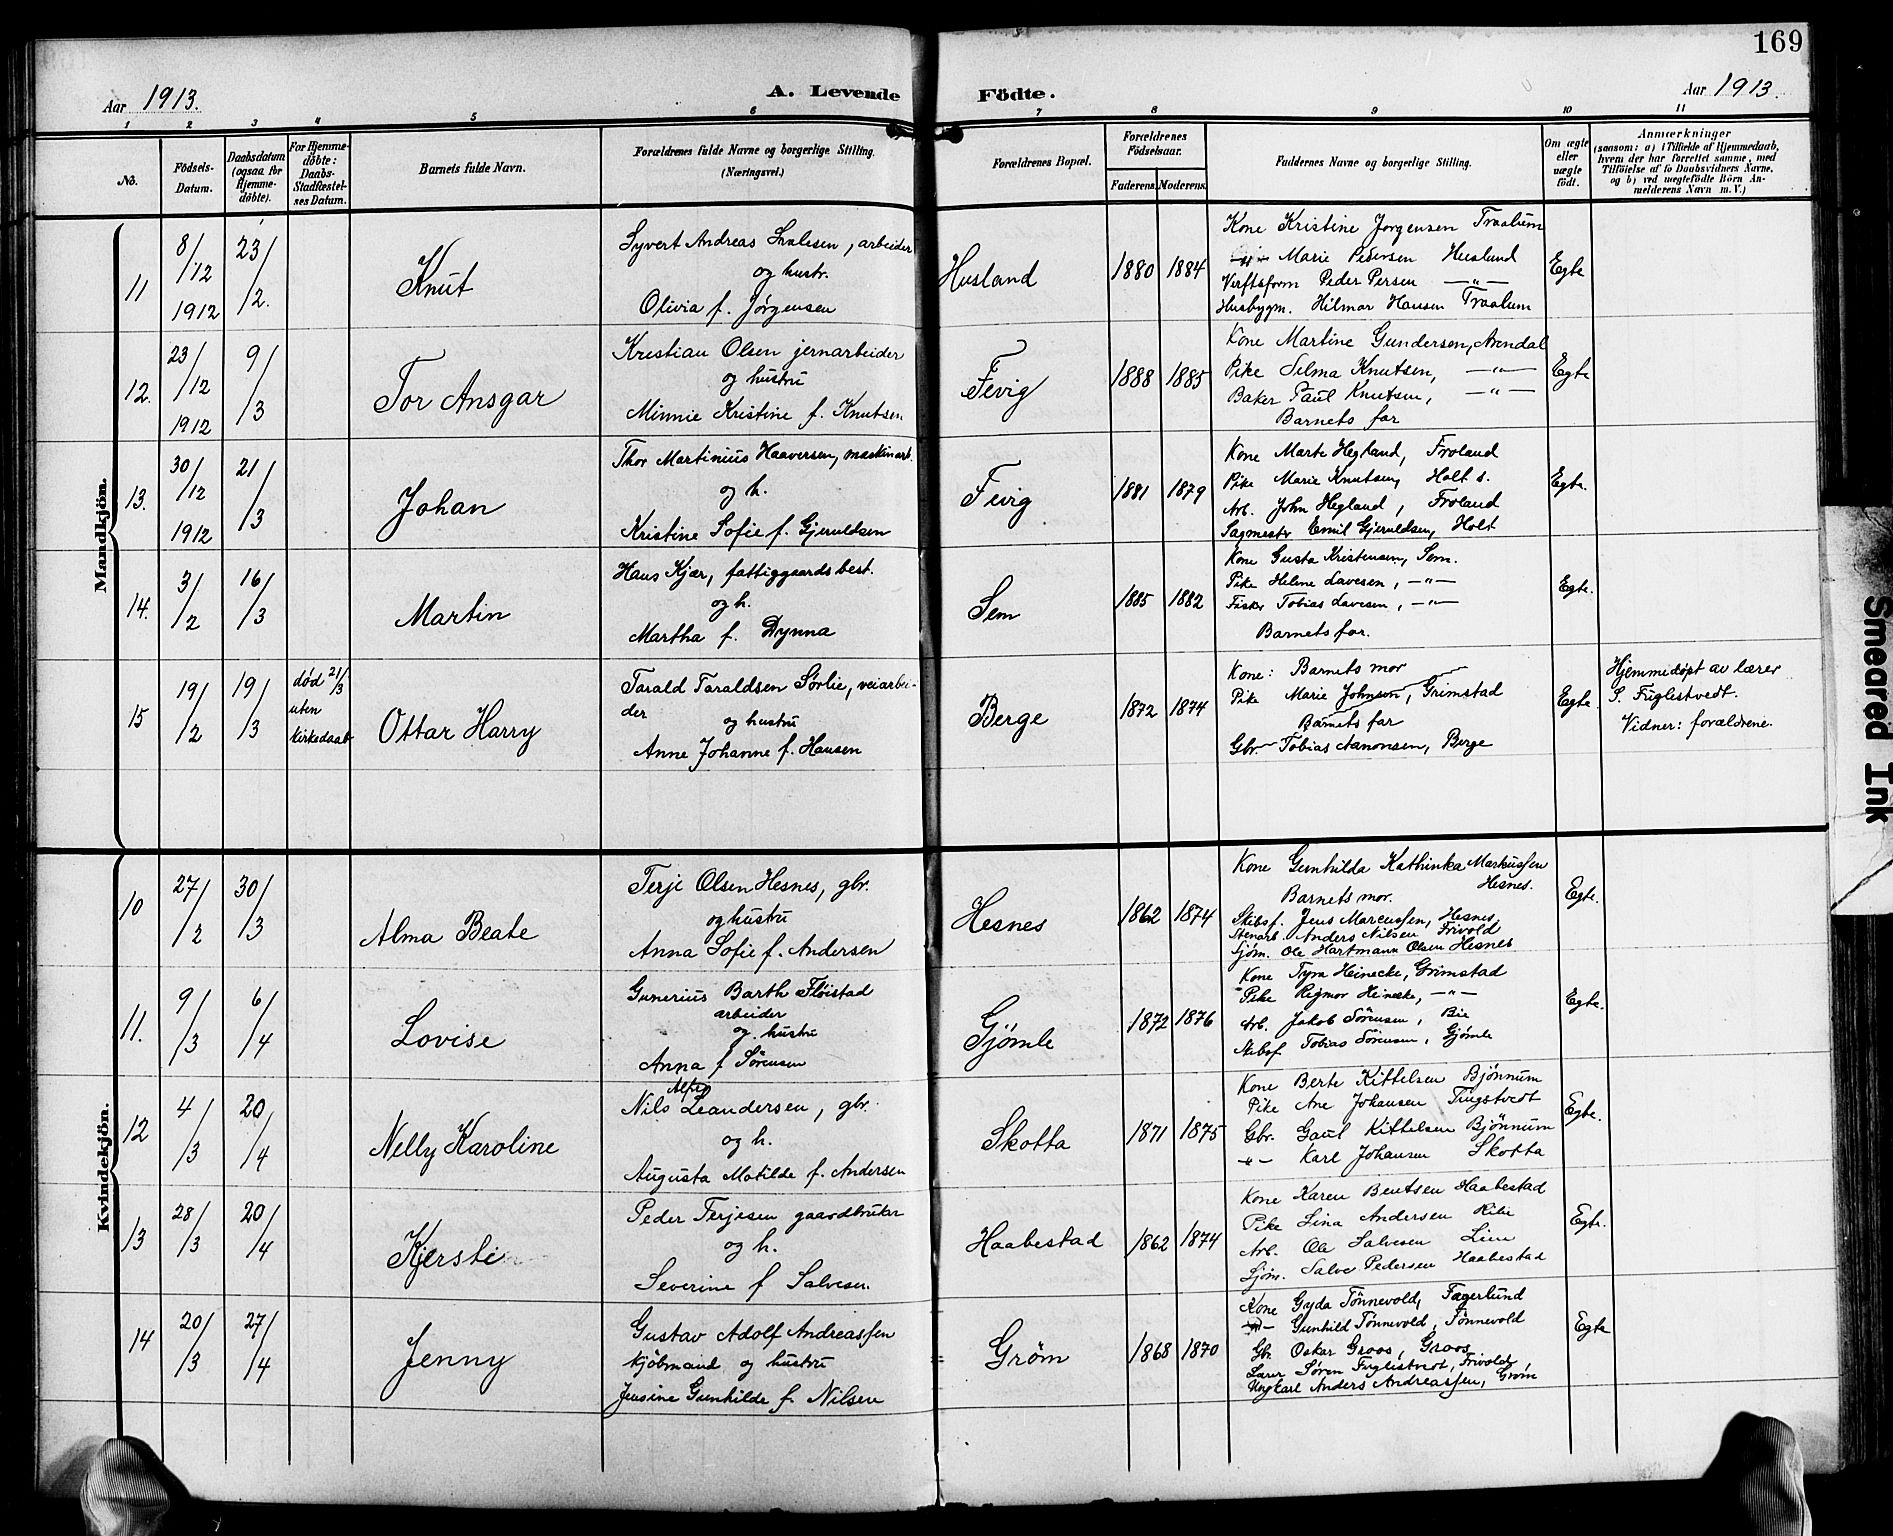 169
Aar 1913. A. Levende Födte. Aar 1913.
1 2 3 4 5 6 7 8 9 10 11
No.
Födsels-Datum.
Daabsdatum (ogsaa for Hjemme-døbte).
For Hjemme-døbte: Daabs-Stadfæstel-ses Datum.
Barnets fulde Navn.
Forældrenes fulde Navne og borgerlige Stilling. (Næringsvei.)
Forældrenes Bopæl.
Forældrenes Födselsaar.
Faderens. Moderens.
Faddernes Navne og borgerlige Stilling.
Om ægte eller uægte födt.
Anmærkninger
(saasom: a) i Tilfælde af Hjemmedaab, hvem der har forrettet samme, med Tilföielse af to Daabsvidners Navne, og b) ved uægtefödte Börn An-melderens Navn m. V.)
Mandkjön.
11
8/12 1912
23/2.
Knut
Syvert Andreas, arbeider
og hustr.
Olivia f. Jørgensen
Husland
1880 1884
Kone Kristine Jorgensen Traalum
—"— Marie Pedersen Husland
Verftsform Peder Persen —"—
Husbygm. Hilmar Hansen Traalum
Egte
12.
23/12 1912
9/3
Tor Ansgar
Kristian Olsen jernarbeider
og hustru
Minnie Kristine f. Knutsen
Fevig
1888 1885
Kone Martine Gundersen, Arendal
Pike Selma Knutsen, —"—
Baker Paul Knutsen, —"—
Barnets far
Egte
13.
30/12 1912
21/3
Johan
Thor Martinius Haaversen, maskinarb.
og h.
Kristine Sofie f. Gjeruldsen
Fevig
1881 1879
Kone Marte Hegland, Froland
Pike Marie Knutsen, Holt s.
Arb. John Hegland, Froland
Sagmestr Emil Gjeruldsen, Holt
Egte.
14.
3/2
16/3
Martin
Hans Kjær, fattiggaardsbest.
og h.
Martha f. Dynna
Sem
1885 1882
Kone Gusta Kristensen, Sem.
Pike Helene Lavesen, —"—
Fisker Tobias Lavesen, —"—
Barnets far.
Egte.
15
19/2
19/3
død 21/3
uten
kirkedaab
Ottar Harry
Tarald Taraldsen Sørlie, veiarbei-
der
og hustru
Anne Johanne f. Hansen
Berge
1872 1874
Kone: Barnets mor
Pike Marie Johnsen, Grimstad
Barnets far
Gbr. Tobias Aanonsen, Berge
Egte.
Hjemmedøpt av lærer
S. Fuglestvedt.
Vidner: forældrene.
Kvindekjön.
10
27/2
30/3
Alma Beate
Terje Olsen Hesnes, gbr.
og hustru
Anna Sofie f. Andersen
Hesnes
1862 1874
Kone Gunhilda Kathinka Markussen
Hesnes.
Barnets mor.
Skibsf. Jens Marcussen, Hesnes
Stenarb. Anders Nilsen Frivold
Sjøm. Ole Hartmann Olsen Hesnes
Egte.
11.
9/3
6/4
Lovise
Gunerius Barth Fløistad
arbeider
og hustru
Anna f Sörensen
Gjömle
1872 1876
Kone Tyra Heinecke, Grimstad
Pike Rigmor Heinecke, —"—
Arb. Jakob Sörensen, Bie
Skibsf Tobias Sørensen, Gjømle
Egte.
12
4/3
20/4
Nelly Karoline
Alfred
Nils Leandersen, gbr.
og h.
Augusta Matilde f. Andersen
Skotta
1871 1875
Kone Berte Kittelsen Bjönnum
Pike Ane Johansen Tingstvedt
Gbr. Gaul Kittelsen Bjönnum
—"— Karl Johansen Skotta
Egte.
13
28/3
20/4
Kjersti
Peder Terjesen gaardbruker
og h.
Severine f Salvesen.
Haabestad
1862 1874
Kone Karen Bentsen Haabestad
Pike Lina Andersen
Arb. Ole Salvesen Lien
Sjøm. Salve Pedersen Haabestad
Egte.
14
20/3
27/4
Jenny
Gustav Adolf Andreassen
kjøbmand og hustru
Jensine Gunhilde f. Nilsen
Grøm
1868 1870
Kone Gyda Tönnevold, Fagerlund
—"— Gunhild Tönnevold, Tönnevold
Gbr. Oskar Groos, Groos
Lærer Søren Fuglestvedt, Frivold
Ungkarl Anders Andreassen, Grøm
Egte
Smeared Ink